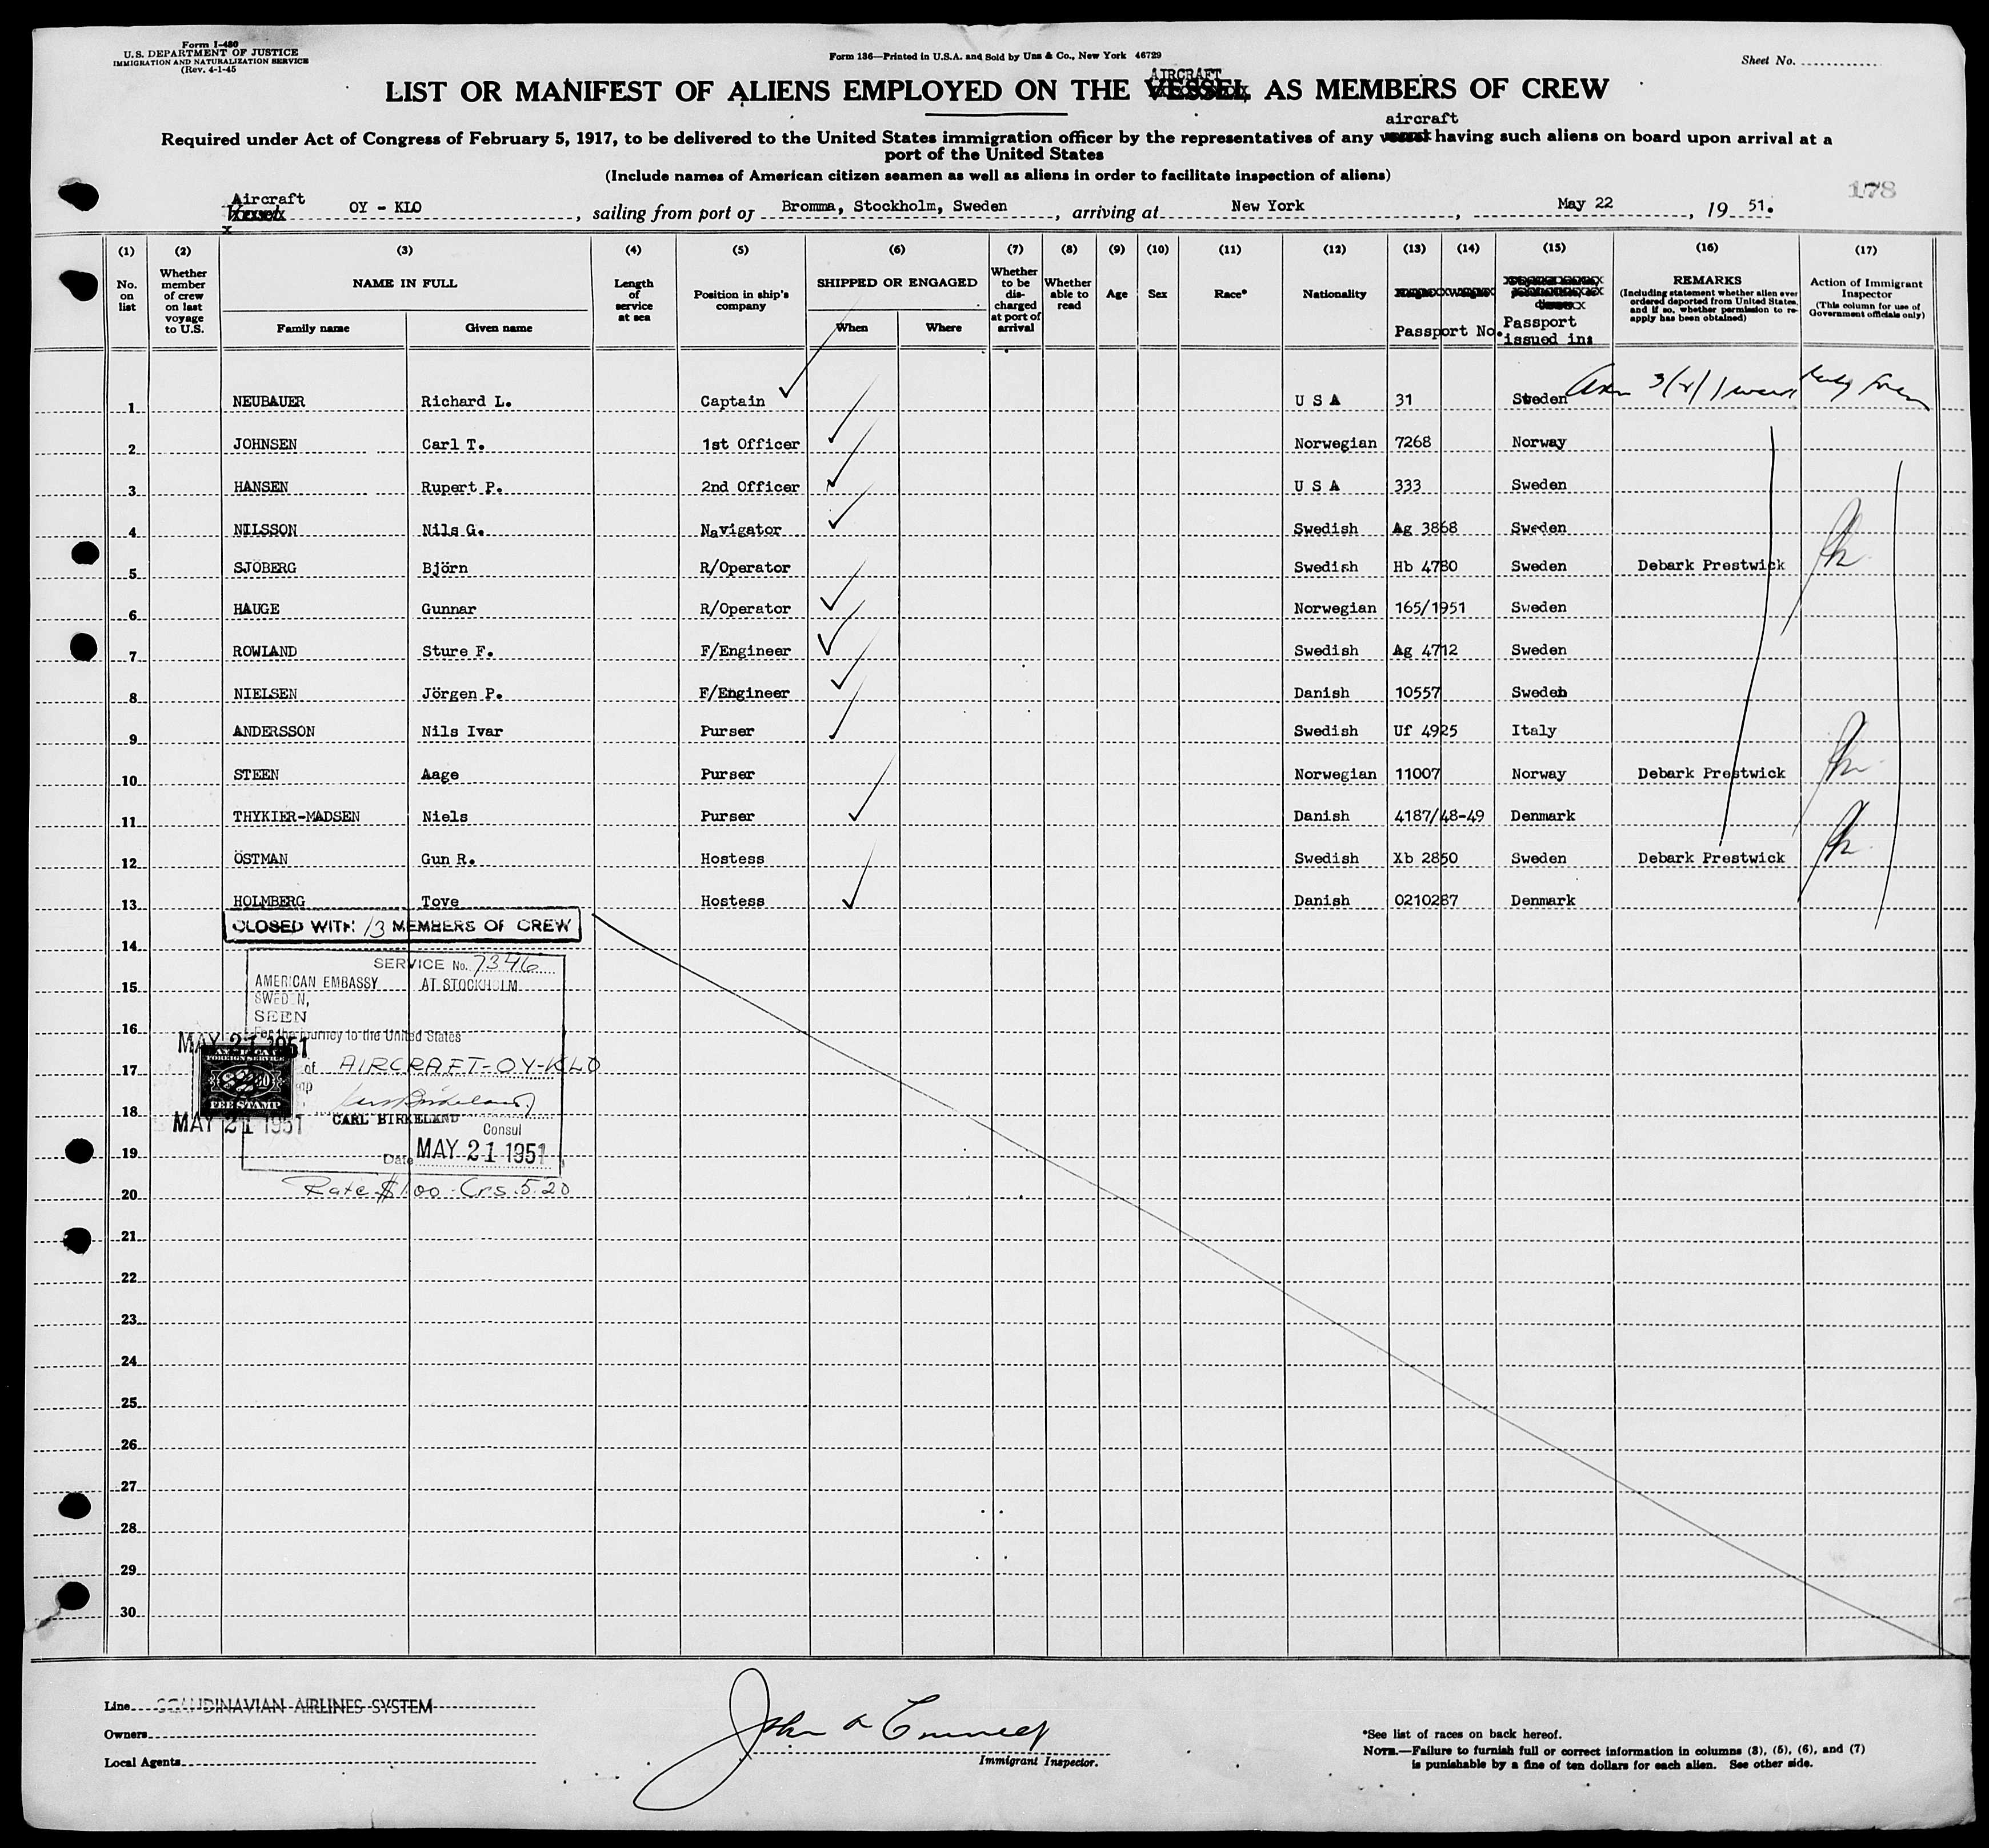 Form I-480
U.S. DEPARTMENT OF JUSTICE
IMMIGRATION AND NATURALIZATION SERVICE
(Rev. 4-1-45
Form 136—Printed in U.S.A. and Sold by Unz & Co., New York 46729
Sheet No.
AIRCRAFT
LIST OR MANIFEST OF ALIENS EMPLOYED ON THE VESSEL AS MEMBERS OF CREW
aircraft
Required under Act of Congress of February 5, 1917, to be delivered to the United States immigration officer by the representatives of any vessel having such aliens on board upon arrival at a
port of the United States
(Include names of American citizen seamen as well as aliens in order to facilitate inspection of aliens)
178
Aircraft
Vessel OY - KLO, sailing from port of Bromma, Stockholm, Sweden, arriving at New York, May 22, 19 51.
(1) (2) (3) (4) (5) (6) (7) (8) (9) (10) (11) (12) (13) (14) (15) (16) (17)
No. on list
Whether member of crew on last voyage to U.S.
NAME IN FULL
Family name Given name
Length of service at sea
Position in ship's company
SHIPPED OR ENGAGED
When Where
Whether to be discharged at port of arrival
Whether able to read
Age
Sex
Race*
Nationality
Passport No.
Passport issued in:
REMARKS
(Including statement whether alien ever ordered deported from United States, and if so, whether permission to re-apply has been obtained)
Action of Immigrant Inspector
(This column for use of Government officials only)
1 NEUBAUER Richard L. Captain U S A 31 Sweden
2 JOHNSEN Carl T. 1st Officer Norwegian 7268 Norway
3 HANSEN Rupert P. 2nd Officer U S A 333 Sweden
4 NILSSON Nils G. Navigator Swedish Ag 3868 Sweden
5 SJÖBERG Björn R/Operator Swedish Hb 4780 Sweden Debark Prestwick
6 HAUGE Gunnar R/Operator Norwegian 165/1951 Sweden
7 ROWLAND Sture F. F/Engineer Swedish Ag 4712 Sweden
8 NIELSEN Jörgen P. F/Engineer Danish 10557 Sweden
9 ANDERSSON Nils Ivar Purser Swedish Uf 4925 Italy
10 STEEN Aage Purser Norwegian 11007 Norway Debark Prestwick
11 THYKIER-MADSEN Niels Purser Danish 4187/48-49 Denmark
12 ÖSTMAN Gun R. Hostess Swedish Xb 2850 Sweden Debark Prestwick
13 HOLMBERG Tove Hostess Danish 0210287 Denmark
CLOSED WITH 13 MEMBERS OF CREW
14
SERVICE No. 7346
15 AMERICAN EMBASSY AT STOCKHOLM
SWEDEN,
SEEN
16 For the journey to the United States
MAY 21 1951
17 of AIRCRAFT-OY-KLO
FOREIGN SERVICE
FEE STAMP
18
MAY 21 1951
CARL BIRKELAND
Consul
19 Date MAY 21 1951
20 Rate $1.00 Crs. 5.20
21
22
23
24
25
26
27
28
29
30
Line SCANDINAVIAN AIRLINES SYSTEM
Owners
Local Agents
Immigrant Inspector.
*See list of races on back hereof.
NOTE.—Failure to furnish full or correct information in columns (3), (5), (6), and (7)
is punishable by a fine of ten dollars for each alien. See other side.